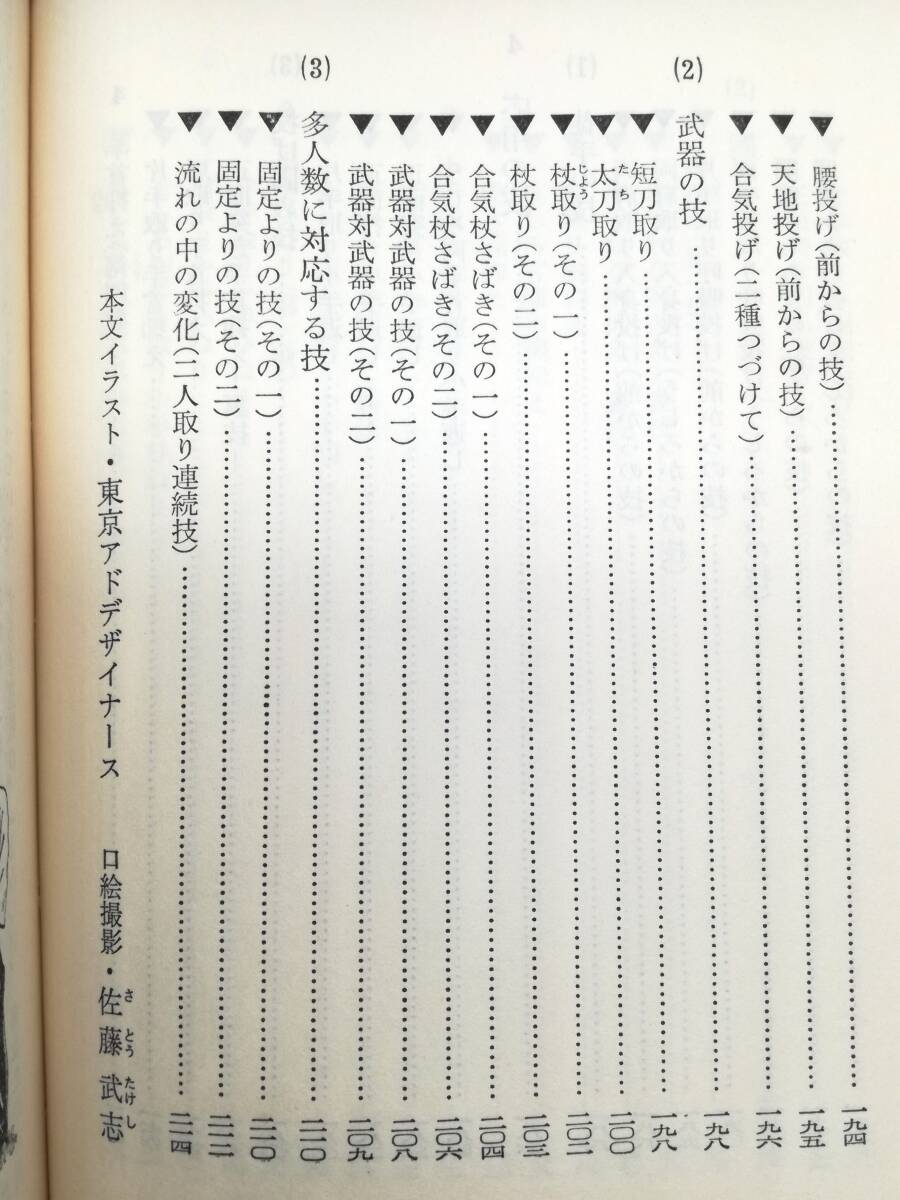 ▼腰投げ(前からの技)……一九四
▼天地投げ(前からの技)……一九五
▼合気投げ(二種つづけて)……一九六
(2) 武器の技……一九八
▼短刀取り……一九八
▼太刀取り……二〇〇
▼杖取り(その一)……二〇二
▼杖取り(その二)……二〇三
▼合気杖さばき(その一)……二〇四
▼合気杖さばき(その二)……二〇六
▼武器対武器の技(その一)……二〇八
▼武器対武器の技(その二)……二〇九
(3) 多人数に対応する技……二一〇
▼固定よりの技(その一)……二一〇
▼固定よりの技(その二)……二一二
▼流れの中の変化(二人取り連続技)……二一四
本文イラスト・東京アドデザイナース 口絵撮影・佐藤武志
たち
じょう
さとうたけし